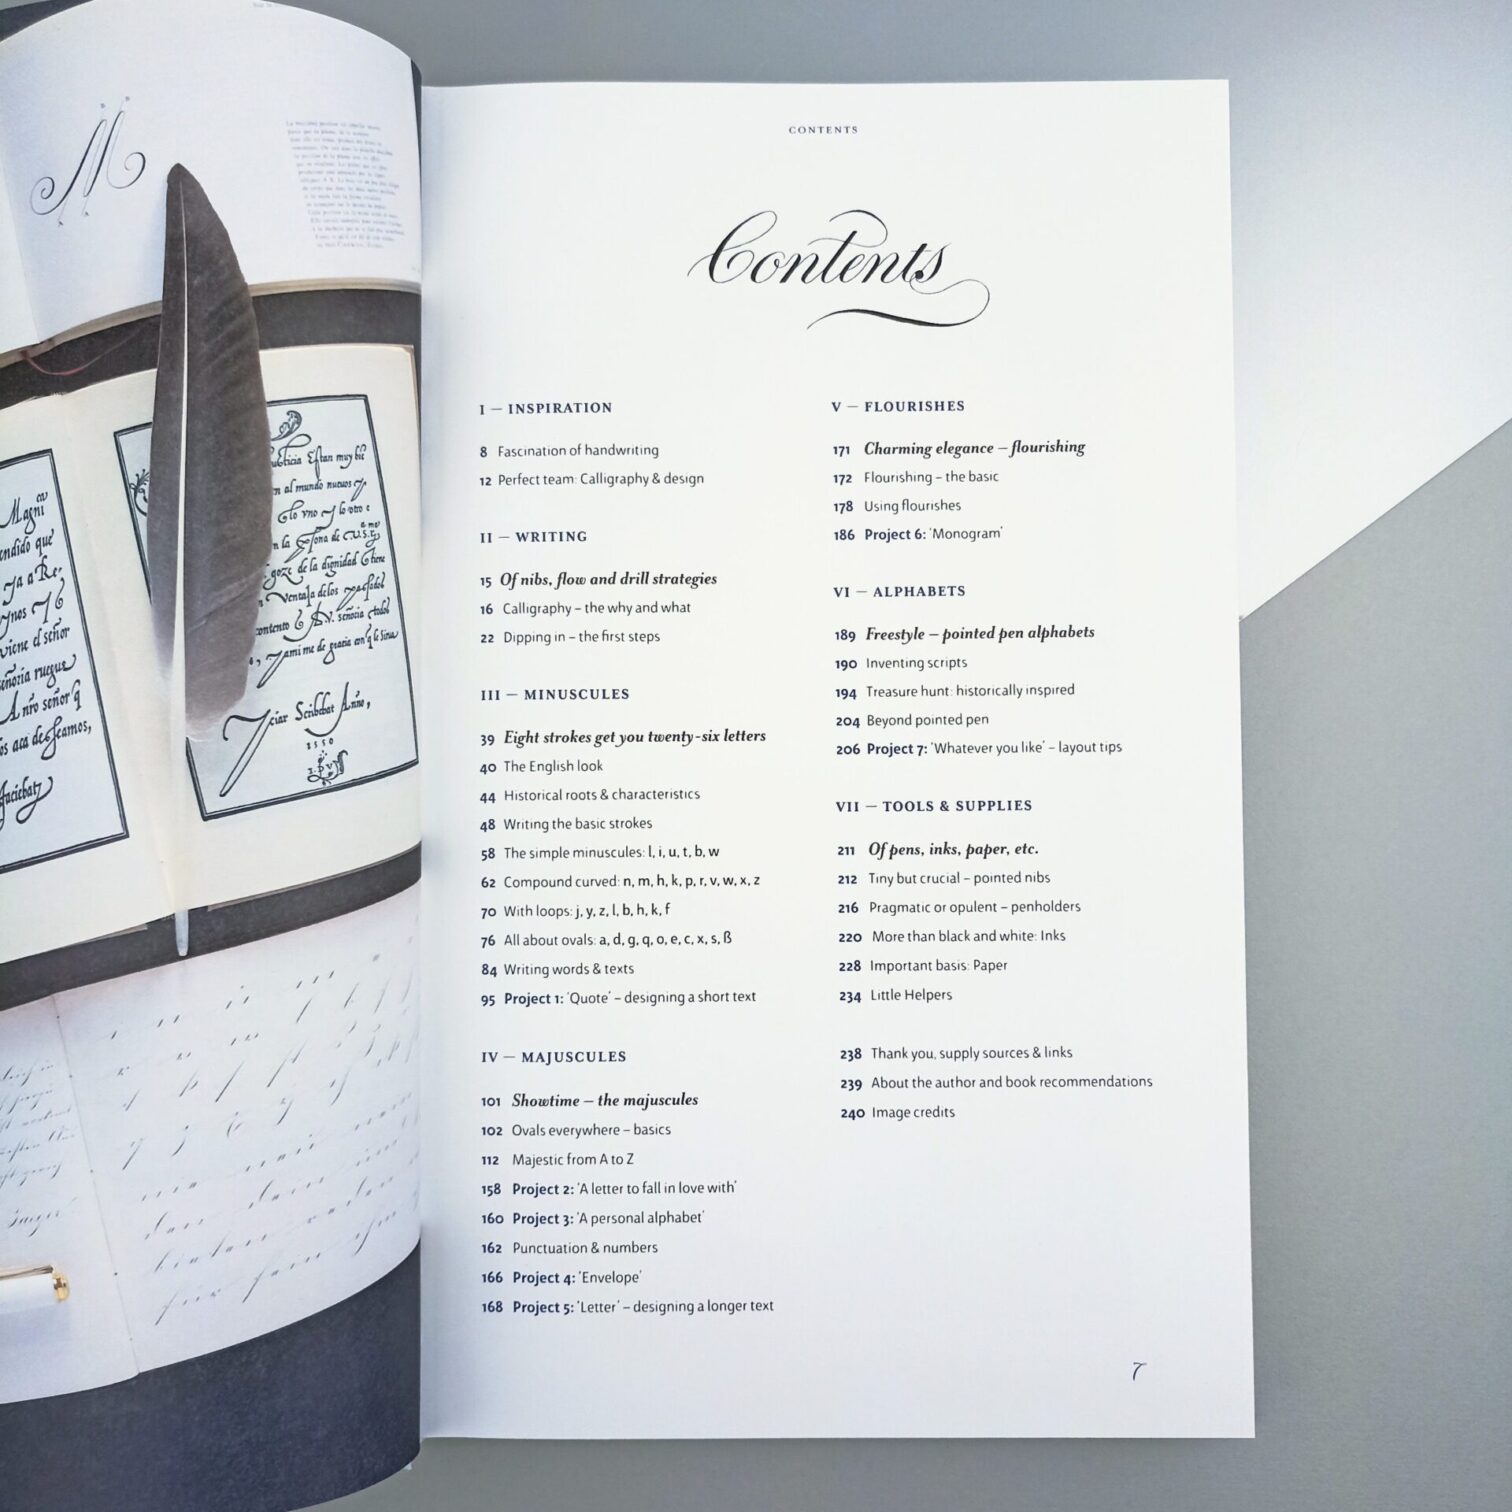 M
Magni
endido que
ya a Re-
viene el señor
señoria ruegue
Anro señor q
os aca desseamos,
justicia Estan muy bie
n al mundo nueuos y
Glo vno y lo otro e
goze de la dignidad Gtiene
n ventaja delos passados
contento & A V. señoria todos
, yami me de gracia con q le Sirua
Yciar Scribebat Anno,
1550
CONTENTS
Contents
I — INSPIRATION
8 Fascination of handwriting
12 Perfect team: Calligraphy & design
II — WRITING
15 Of nibs, flow and drill strategies
16 Calligraphy – the why and what
22 Dipping in – the first steps
III — MINUSCULES
39 Eight strokes get you twenty-six letters
40 The English look
44 Historical roots & characteristics
48 Writing the basic strokes
58 The simple minuscules: l, i, u, t, b, w
62 Compound curved: n, m, h, k, p, r, v, w, x, z
70 With loops: j, y, z, l, b, h, k, f
76 All about ovals: a, d, g, q, o, e, c, x, s, ß
84 Writing words & texts
95 Project 1: ‘Quote’ – designing a short text
IV — MAJUSCULES
101 Showtime – the majuscules
102 Ovals everywhere – basics
112 Majestic from A to Z
158 Project 2: ‘A letter to fall in love with’
160 Project 3: ‘A personal alphabet’
162 Punctuation & numbers
166 Project 4: ‘Envelope’
168 Project 5: ‘Letter’ – designing a longer text
V — FLOURISHES
171 Charming elegance – flourishing
172 Flourishing – the basic
178 Using flourishes
186 Project 6: ‘Monogram’
VI — ALPHABETS
189 Freestyle – pointed pen alphabets
190 Inventing scripts
194 Treasure hunt: historically inspired
204 Beyond pointed pen
206 Project 7: ‘Whatever you like’ – layout tips
VII — TOOLS & SUPPLIES
211 Of pens, inks, paper, etc.
212 Tiny but crucial – pointed nibs
216 Pragmatic or opulent – penholders
220 More than black and white: Inks
228 Important basis: Paper
234 Little Helpers
238 Thank you, supply sources & links
239 About the author and book recommendations
240 Image credits
7